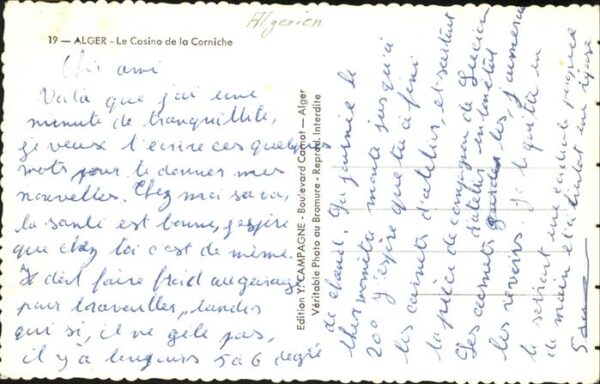 Algerien
19 — ALGER - Le Casino de la Corniche
Cher ami
Voilà que j'ai une
minute de tranquillité,
je veux t'écrire ces quelques
mots pour te donner mes
nouvelles. Chez moi sa va,
la santé est bonne, j'espère
que chez toi c'est de même.
Il doit faire froid au garage
pour travailler, tandis
qui si, il ne gèle pas,
il y à toujours 5 à 6 degré
Edition Y. CAMPAGNE - Boulevard Carnot — Alger
Véritable Photo au Bromure - Reprod. Interdite
de chaud. La journée le
thermomètre monte jusqu'à
20° J'espère que tu à fini
les carnets d'atelier, et surtout
la pièce de compagnon de Lucien
Les carnets d'atelier
les, j'aimerai
les revoirs. J'ai quitté
de main